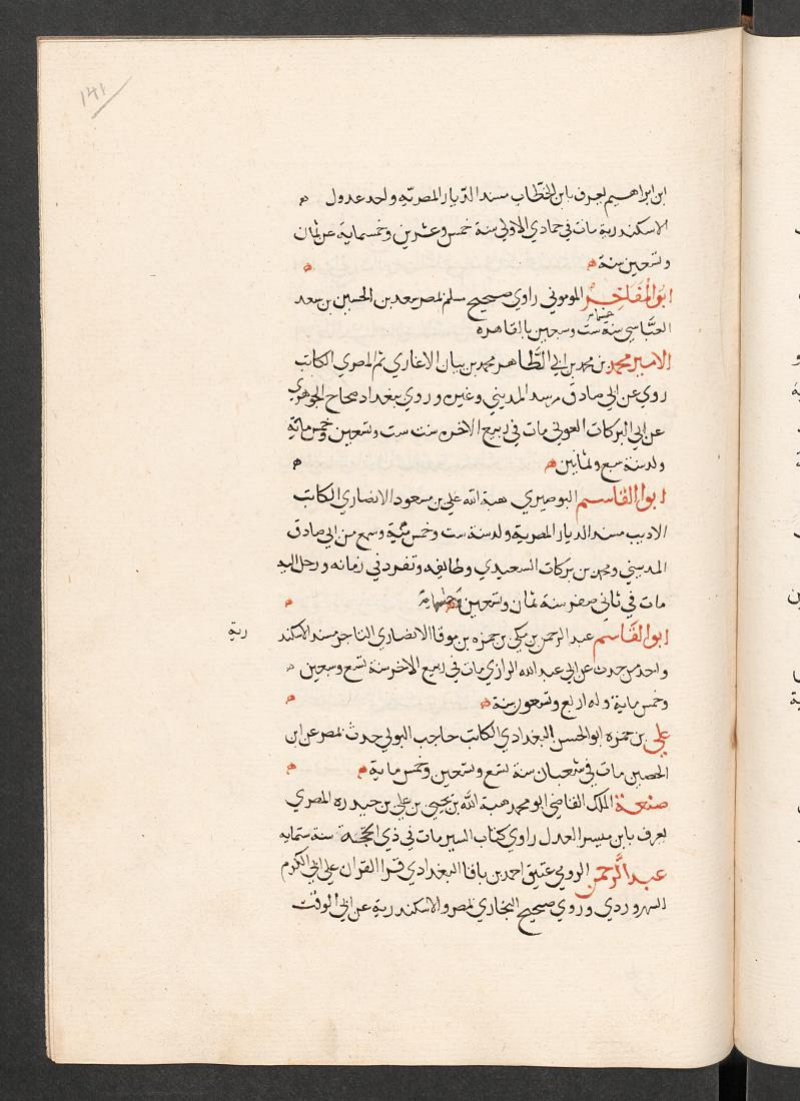 ١٤١
ابن ابراهيم يعرف بابن الخطّاب مسند الدّيار المصريّه واحد عدول
الاسكندرية مات في جمادي الاولى سنة خمس وعشرين وخمسماية عن ثمان
وتسعين سنة
ابو المفاخر الموموني راوي صحيح مسلم بمصر سعد بن الحسين بن سعد
العبّاسي سنة ست وسبعين بالقاهره
خمسمايه
الامير محمد بن محمد بن ابي الطّاهر محمد بن بيان الاغاري ثم المصري الكاتب
روي عن ابي صادق مرسد المديني وغيره وروي ببغداد صحاح الجوهري
عن ابي البركات العوفي مات في ربيع الاخره سنت ست وتسعين وخمس مائة
ولد سنة سبع وثمانين
ابوا القاسم البوصيري هبة الله علي بن مسعود الانصاري الكاتب
الاديب مسند الديار المصرية ولد سنة ست وخمس مئية وسمع من ابي صادق
المديني ومحمد بن بركات السعيدي وطائفه وتفرد في زمانه ورحل اليه
مات في ثاني صفر سنة ثمان وتسعين وخمسمامة
ابو القاسم عبد الرحمن بن مكي بن حمزه بن موقا الانصاري التاجر مسند الاسكند
رية
واحد من حدث عن ابي عبد الله الرازي مات في ربيع الاخر سنة تسع وسبعين
وخمس ماية وله اربع وتسعون سنة
علي بن حمزه ابو الحسن البغدادي الكاتب حاجب البوبي حدث بمصر عن ابن
الحصين مات في شعبان سنة تسع وتسعين وخمس ماية
صنعة الملك القاضي ابو محمد هبة الله بن يحيى بن علي بن حيدره المصري
يعرف بابن ميسر العدل راوي كتاب السير مات في ذي الحجّة سنة ستمايه
عبد الرَّحمن الرومي عتيق احمد بن باقا البغدادي قرا القران علي ابي الكرم
السهروردي وروي صحيح البخاري بمصر والاسكندرية عن ابي الوقت